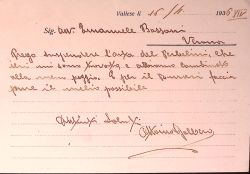 Vallese li 16/4 1936 XIV
Sig. Avv. Emanuele Bassani
Verona
Prego sospendere l'asta del Gerbelini, che
ieri mi sono trovato e abbiamo combinato
alla meno peggio. E per il domani faccia
pure il meglio possibile
Distinti Saluti